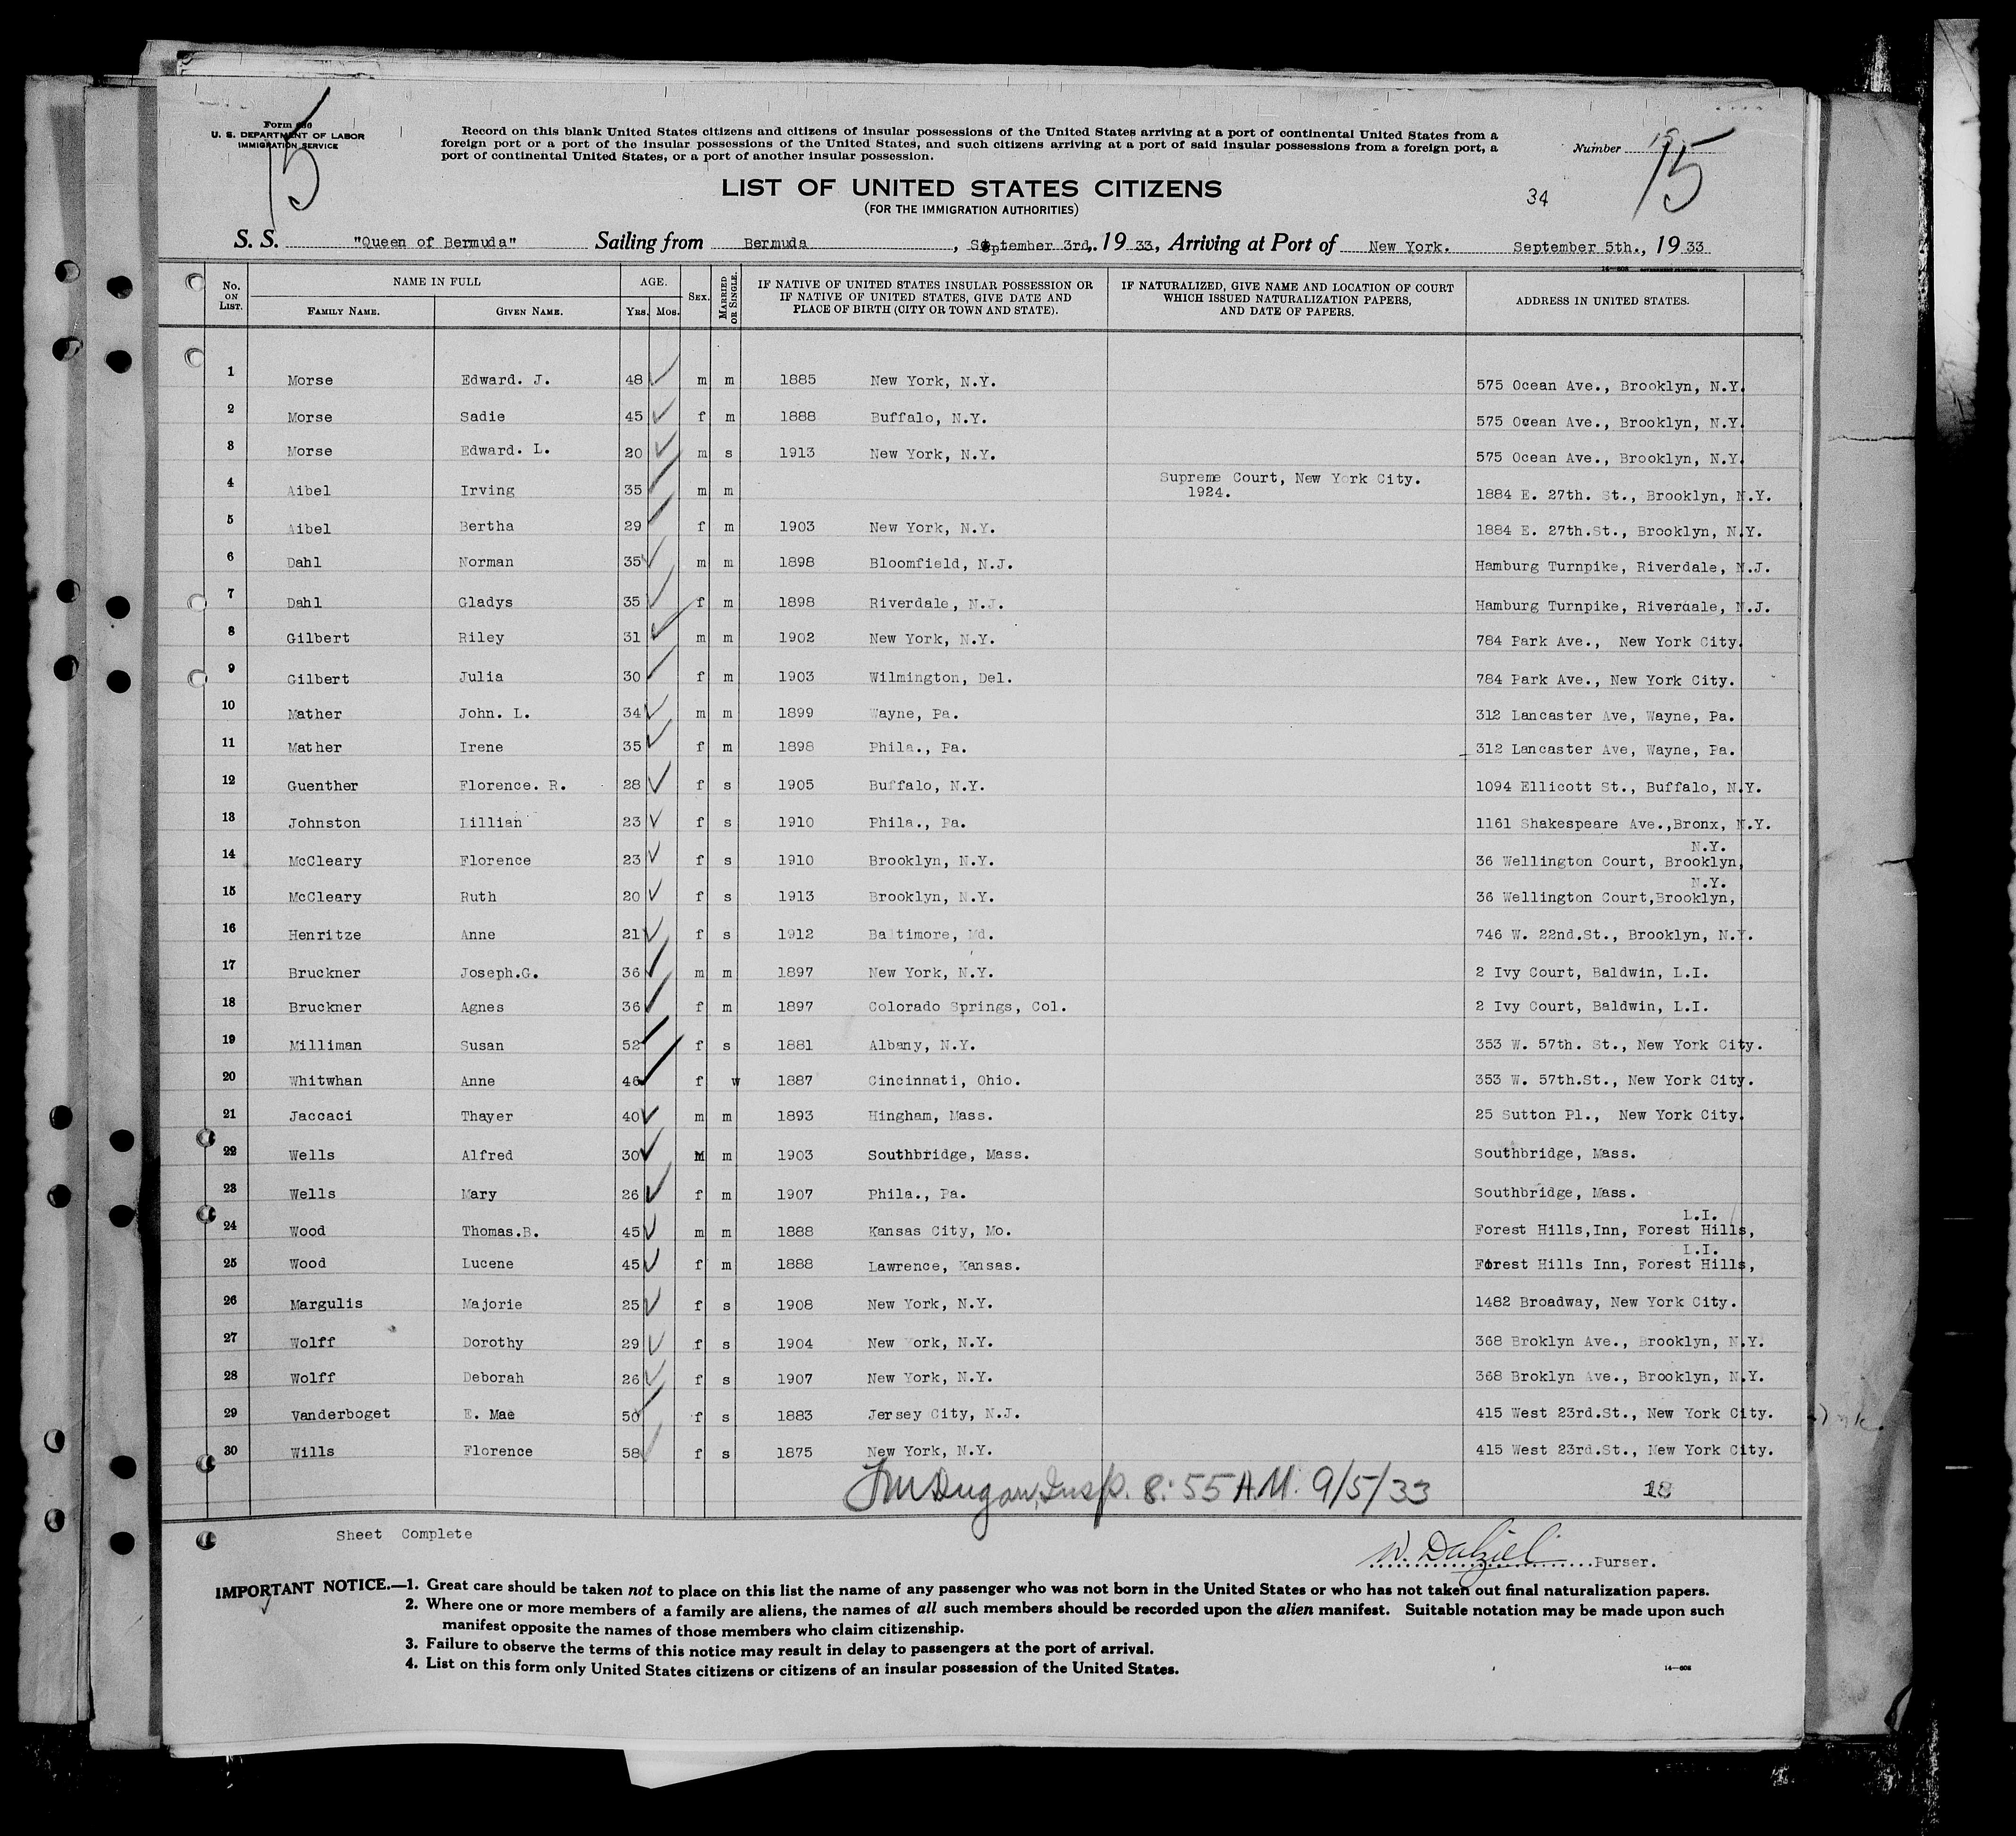 Form 630
U. S. DEPARTMENT OF LABOR
IMMIGRATION SERVICE
15
Record on this blank United States citizens and citizens of insular possessions of the United States arriving at a port of continental United States from a
foreign port or a port of the insular possessions of the United States, and such citizens arriving at a port of said insular possessions from a foreign port, a
port of continental United States, or a port of another insular possession.
Number 15
LIST OF UNITED STATES CITIZENS
(FOR THE IMMIGRATION AUTHORITIES)
34
S. S. "Queen of Bermuda" Sailing from Bermuda, September 3rd,. 1933, Arriving at Port of New York. September 5th., 1933
No. ON LIST. NAME IN FULL FAMILY NAME. GIVEN NAME. AGE. YRS. MOS. SEX. MARRIED OR SINGLE. IF NATIVE OF UNITED STATES INSULAR POSSESSION OR IF NATIVE OF UNITED STATES, GIVE DATE AND PLACE OF BIRTH (CITY OR TOWN AND STATE). IF NATURALIZED, GIVE NAME AND LOCATION OF COURT WHICH ISSUED NATURALIZATION PAPERS, AND DATE OF PAPERS. ADDRESS IN UNITED STATES.
1 Morse Edward. J. 48 m m 1885 New York, N.Y. 575 Ocean Ave., Brooklyn, N.Y.
2 Morse Sadie 45 f m 1888 Buffalo, N.Y. 575 Ocean Ave., Brooklyn, N.Y.
3 Morse Edward. L. 20 m s 1913 New York, N.Y. 575 Ocean Ave., Brooklyn, N.Y.
4 Aibel Irving 35 m m Supreme Court, New York City. 1924. 1884 E. 27th. St., Brooklyn, N.Y.
5 Aibel Bertha 29 f m 1903 New York, N.Y. 1884 E. 27th.St., Brooklyn, N.Y.
6 Dahl Norman 35 m m 1898 Bloomfield, N.J. Hamburg Turnpike, Riverdale, N.J.
7 Dahl Gladys 35 f m 1898 Riverdale, N.J. Hamburg Turnpike, Riverdale, N.J.
8 Gilbert Riley 31 m m 1902 New York, N.Y. 784 Park Ave., New York City.
9 Gilbert Julia 30 f m 1903 Wilmington, Del. 784 Park Ave., New York City.
10 Mather John. L. 34 m m 1899 Wayne, Pa. 312 Lancaster Ave, Wayne, Pa.
11 Mather Irene 35 f m 1898 Phila., Pa. 312 Lancaster Ave, Wayne, Pa.
12 Guenther Florence. R. 28 f s 1905 Buffalo, N.Y. 1094 Ellicott St., Buffalo, N.Y.
13 Johnston Lillian 23 f s 1910 Phila., Pa. 1161 Shakespeare Ave.,Bronx, N.Y.
14 McCleary Florence 23 f s 1910 Brooklyn, N.Y. 36 Wellington Court, Brooklyn, N.Y.
15 McCleary Ruth 20 f s 1913 Brooklyn, N.Y. 36 Wellington Court,Brooklyn, N.Y.
16 Henritze Anne 21 f s 1912 Baltimore, Md. 746 W. 22nd.St., Brooklyn, N.Y.
17 Bruckner Joseph.G. 36 m m 1897 New York, N.Y. 2 Ivy Court, Baldwin, L.I.
18 Bruckner Agnes 36 f m 1897 Colorado Springs, Col. 2 Ivy Court, Baldwin, L.I.
19 Milliman Susan 52 f s 1881 Albany, N.Y. 353 W. 57th. St., New York City.
20 Whitwhan Anne 46 f w 1887 Cincinnati, Ohio. 353 W. 57th.St., New York City.
21 Jaccaci Thayer 40 m m 1893 Hingham, Mass. 25 Sutton Pl., New York City.
22 Wells Alfred 30 M m 1903 Southbridge, Mass. Southbridge, Mass.
23 Wells Mary 26 f m 1907 Phila., Pa. Southbridge, Mass.
24 Wood Thomas.B. 45 m m 1888 Kansas City, Mo. Forest Hills,Inn, Forest Hills, L.I.
25 Wood Lucene 45 f m 1888 Lawrence, Kansas. Forest Hills Inn, Forest Hills, L.I.
26 Margulis Majorie 25 f s 1908 New York, N.Y. 1482 Broadway, New York City.
27 Wolff Dorothy 29 f s 1904 New York, N.Y. 368 Broklyn Ave., Brooklyn, N.Y.
28 Wolff Deborah 26 f s 1907 New York, N.Y. 368 Broklyn Ave., Brooklyn, N.Y.
29 Vanderboget E. Mae 50 f s 1883 Jersey City, N.J. 415 West 23rd.St., New York City.
30 Wills Florence 58 f s 1875 New York, N.Y. 415 West 23rd.St., New York City.
JM Dugan, Insp. 8:55 A.M. 9/5/33
18
Sheet Complete
W. Dalziel Purser.
IMPORTANT NOTICE.—1. Great care should be taken not to place on this list the name of any passenger who was not born in the United States or who has not taken out final naturalization papers.
2. Where one or more members of a family are aliens, the names of all such members should be recorded upon the alien manifest. Suitable notation may be made upon such
manifest opposite the names of those members who claim citizenship.
3. Failure to observe the terms of this notice may result in delay to passengers at the port of arrival.
4. List on this form only United States citizens or citizens of an insular possession of the United States.
14—606